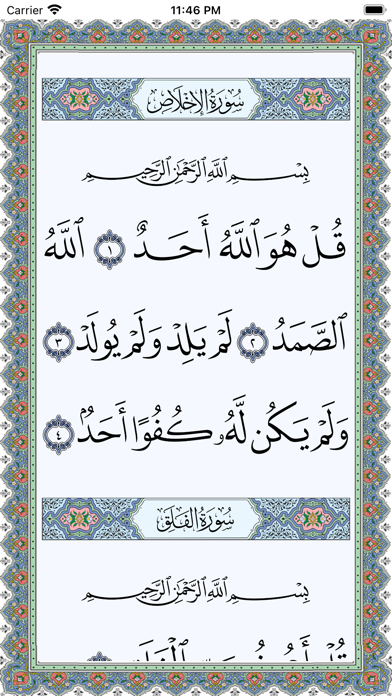 Carrier 11:46 PM
سُورَةُ الإِخْلَاصِ
بِسْمِ ٱللَّهِ ٱلرَّحْمَٰنِ ٱلرَّحِيمِ
قُلْ هُوَ ٱللَّهُ أَحَدٌ ١ ٱللَّهُ
ٱلصَّمَدُ ٢ لَمْ يَلِدْ وَلَمْ يُولَدْ ٣
وَلَمْ يَكُن لَّهُۥ كُفُوًا أَحَدٌۢ ٤
سُورَةُ الفَلَقِ
بِسْمِ ٱللَّهِ ٱلرَّحْمَٰنِ ٱلرَّحِيمِ